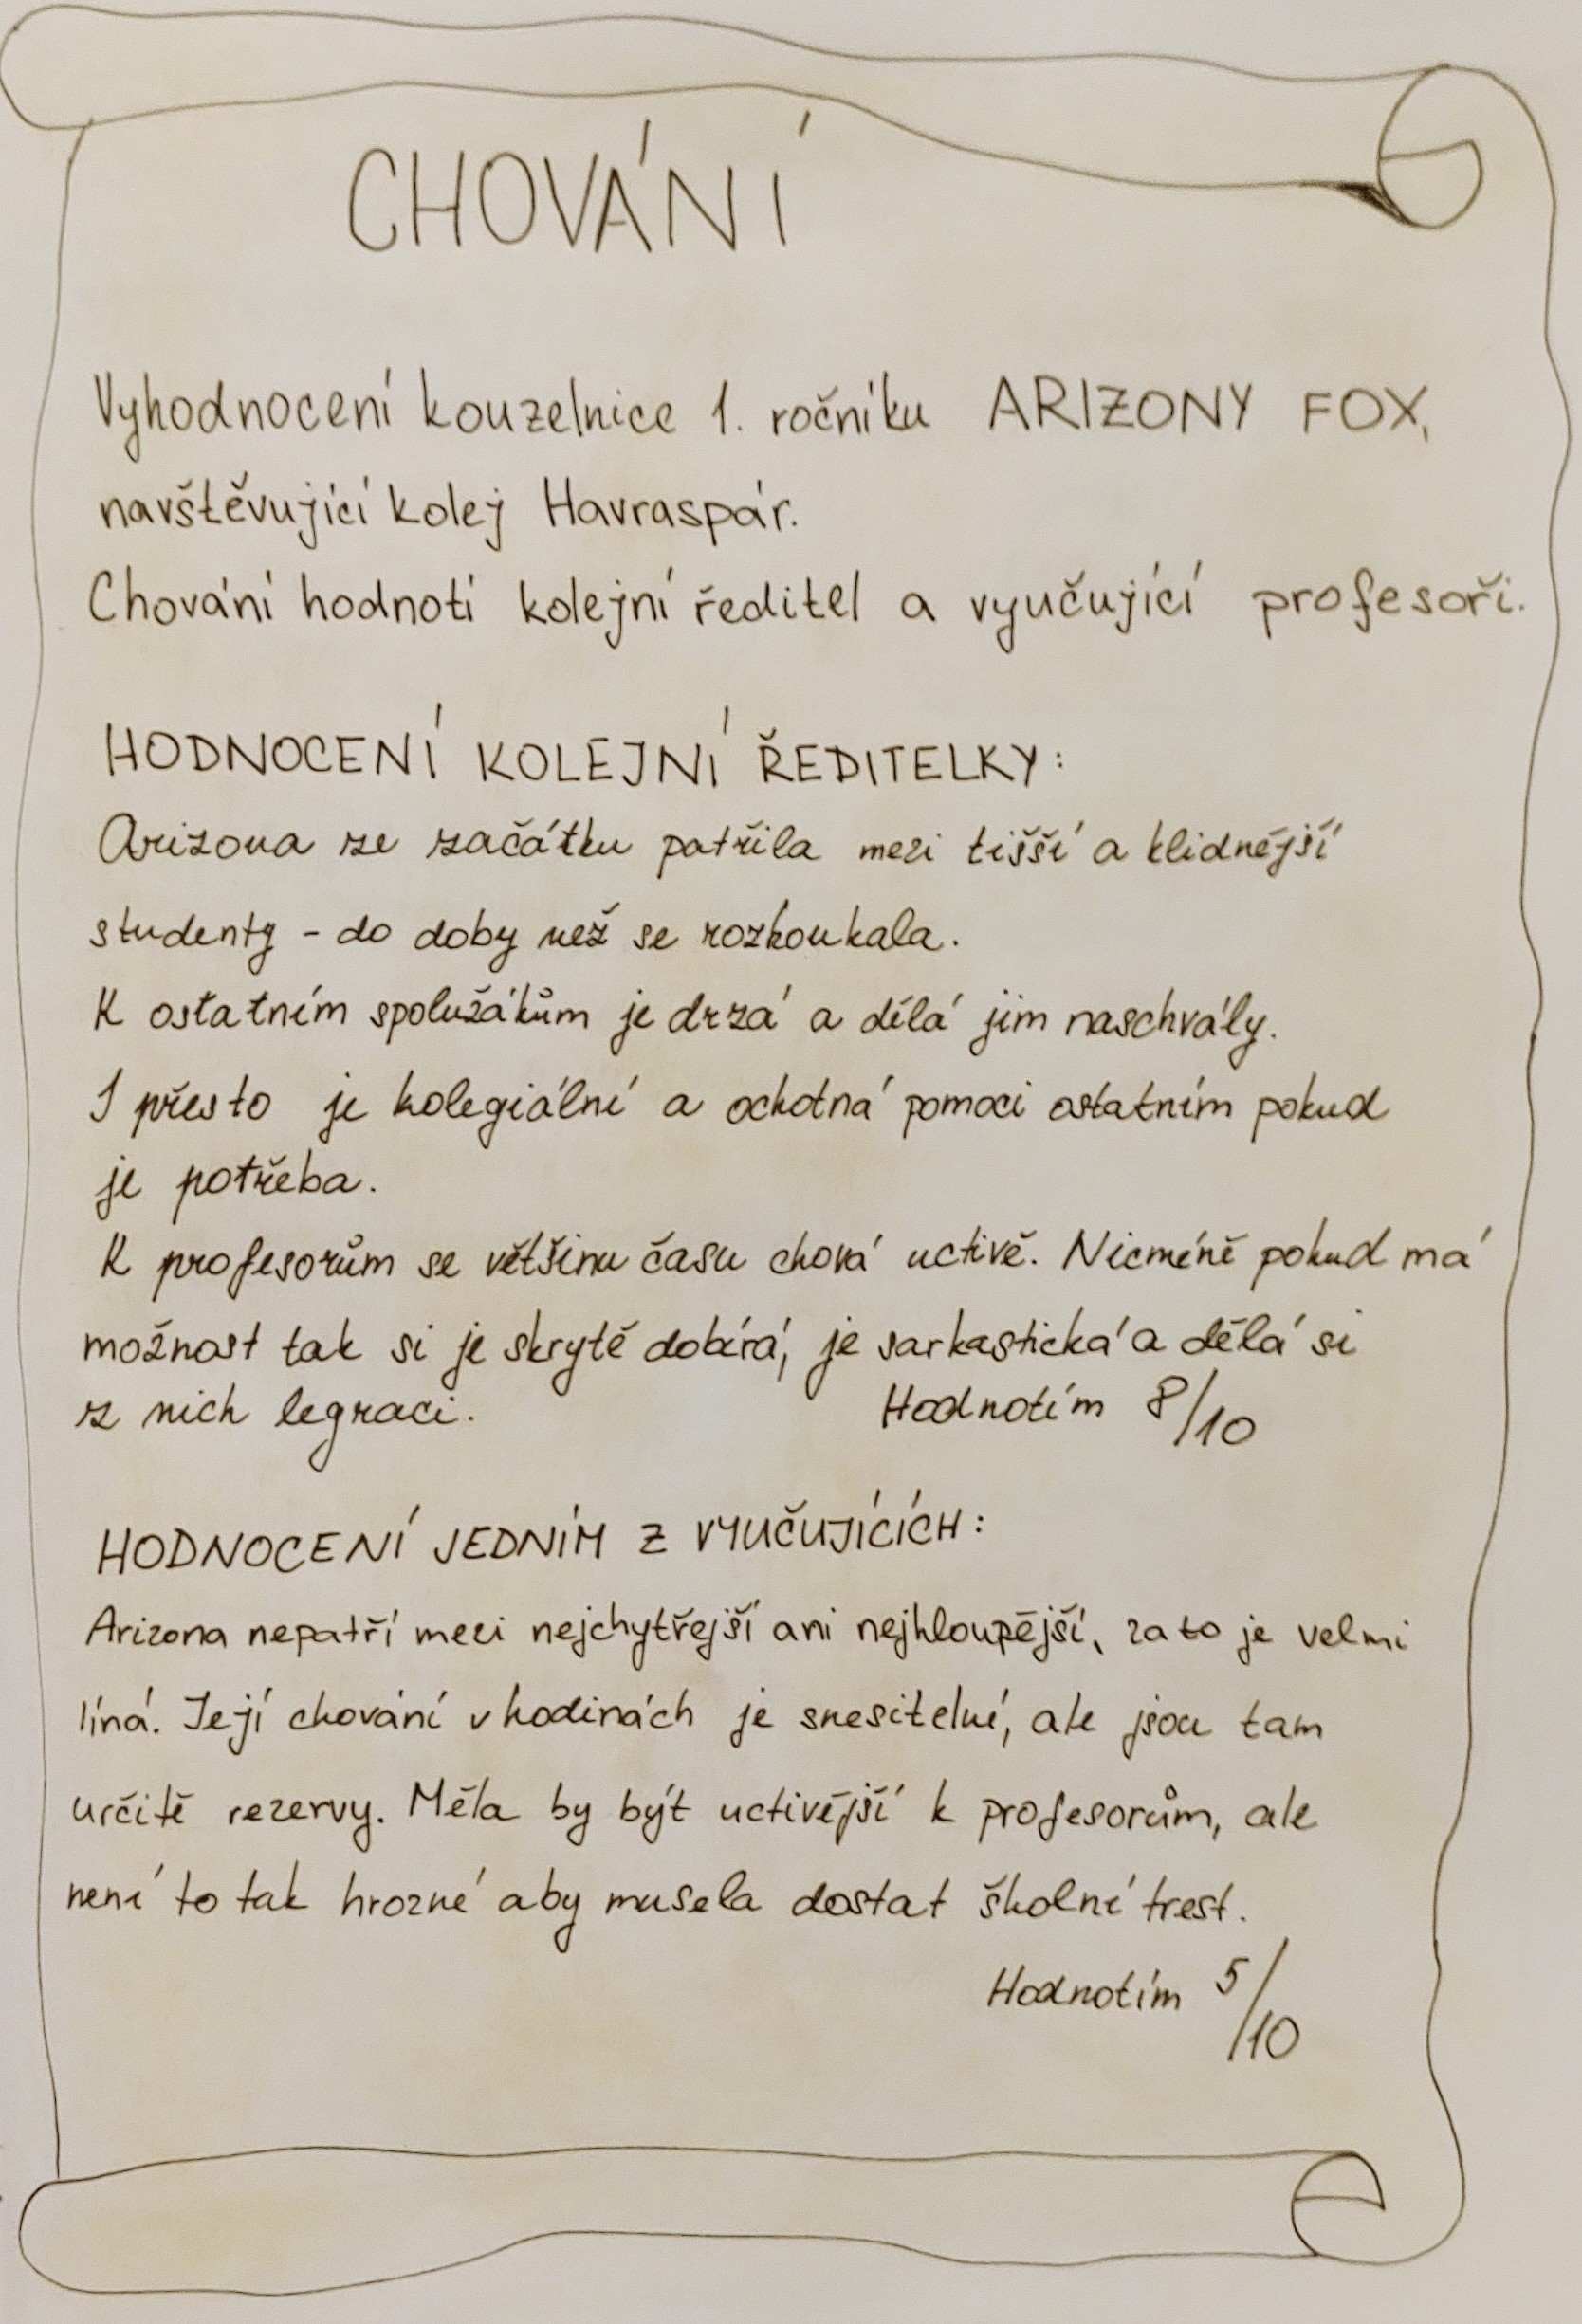 CHOVÁNÍ
Vyhodnocení kouzelnice 1. ročníku ARIZONY FOX,
navštěvující kolej Havraspár.
Chování hodnotí kolejní ředitel a vyučující profesoři.
HODNOCENÍ KOLEJNÍ ŘEDITELKY:
Arizona ze začátku patřila mezi tišší a klidnější
studenty - do doby než se rozkoukala.
K ostatním spolužákům je drzá a dělá jim naschvály.
I přesto je kolegiální a ochotná pomoci ostatním pokud
je potřeba.
K profesorům se většinu času chová uctivě. Nicméně pokud má
možnost tak si je skrytě dobírá, je sarkastická a dělá si
z nich legraci.
Hodnotím 8/10
HODNOCENÍ JEDNÍM Z VYUČUJÍCÍCH:
Arizona nepatří mezi nejchytřejší ani nejhloupější, za to je velmi
líná. Její chování v hodinách je snesitelné, ale jsou tam
určitě rezervy. Měla by být uctivější k profesorům, ale
není to tak hrozné aby musela dostat školní trest.
Hodnotím 5/10